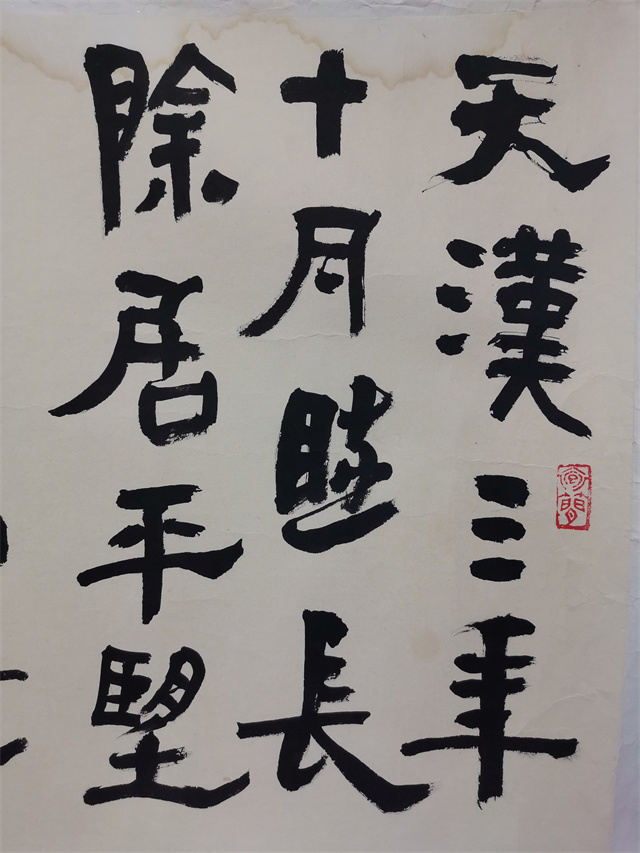 天漢三年
十月隧長
除居平望